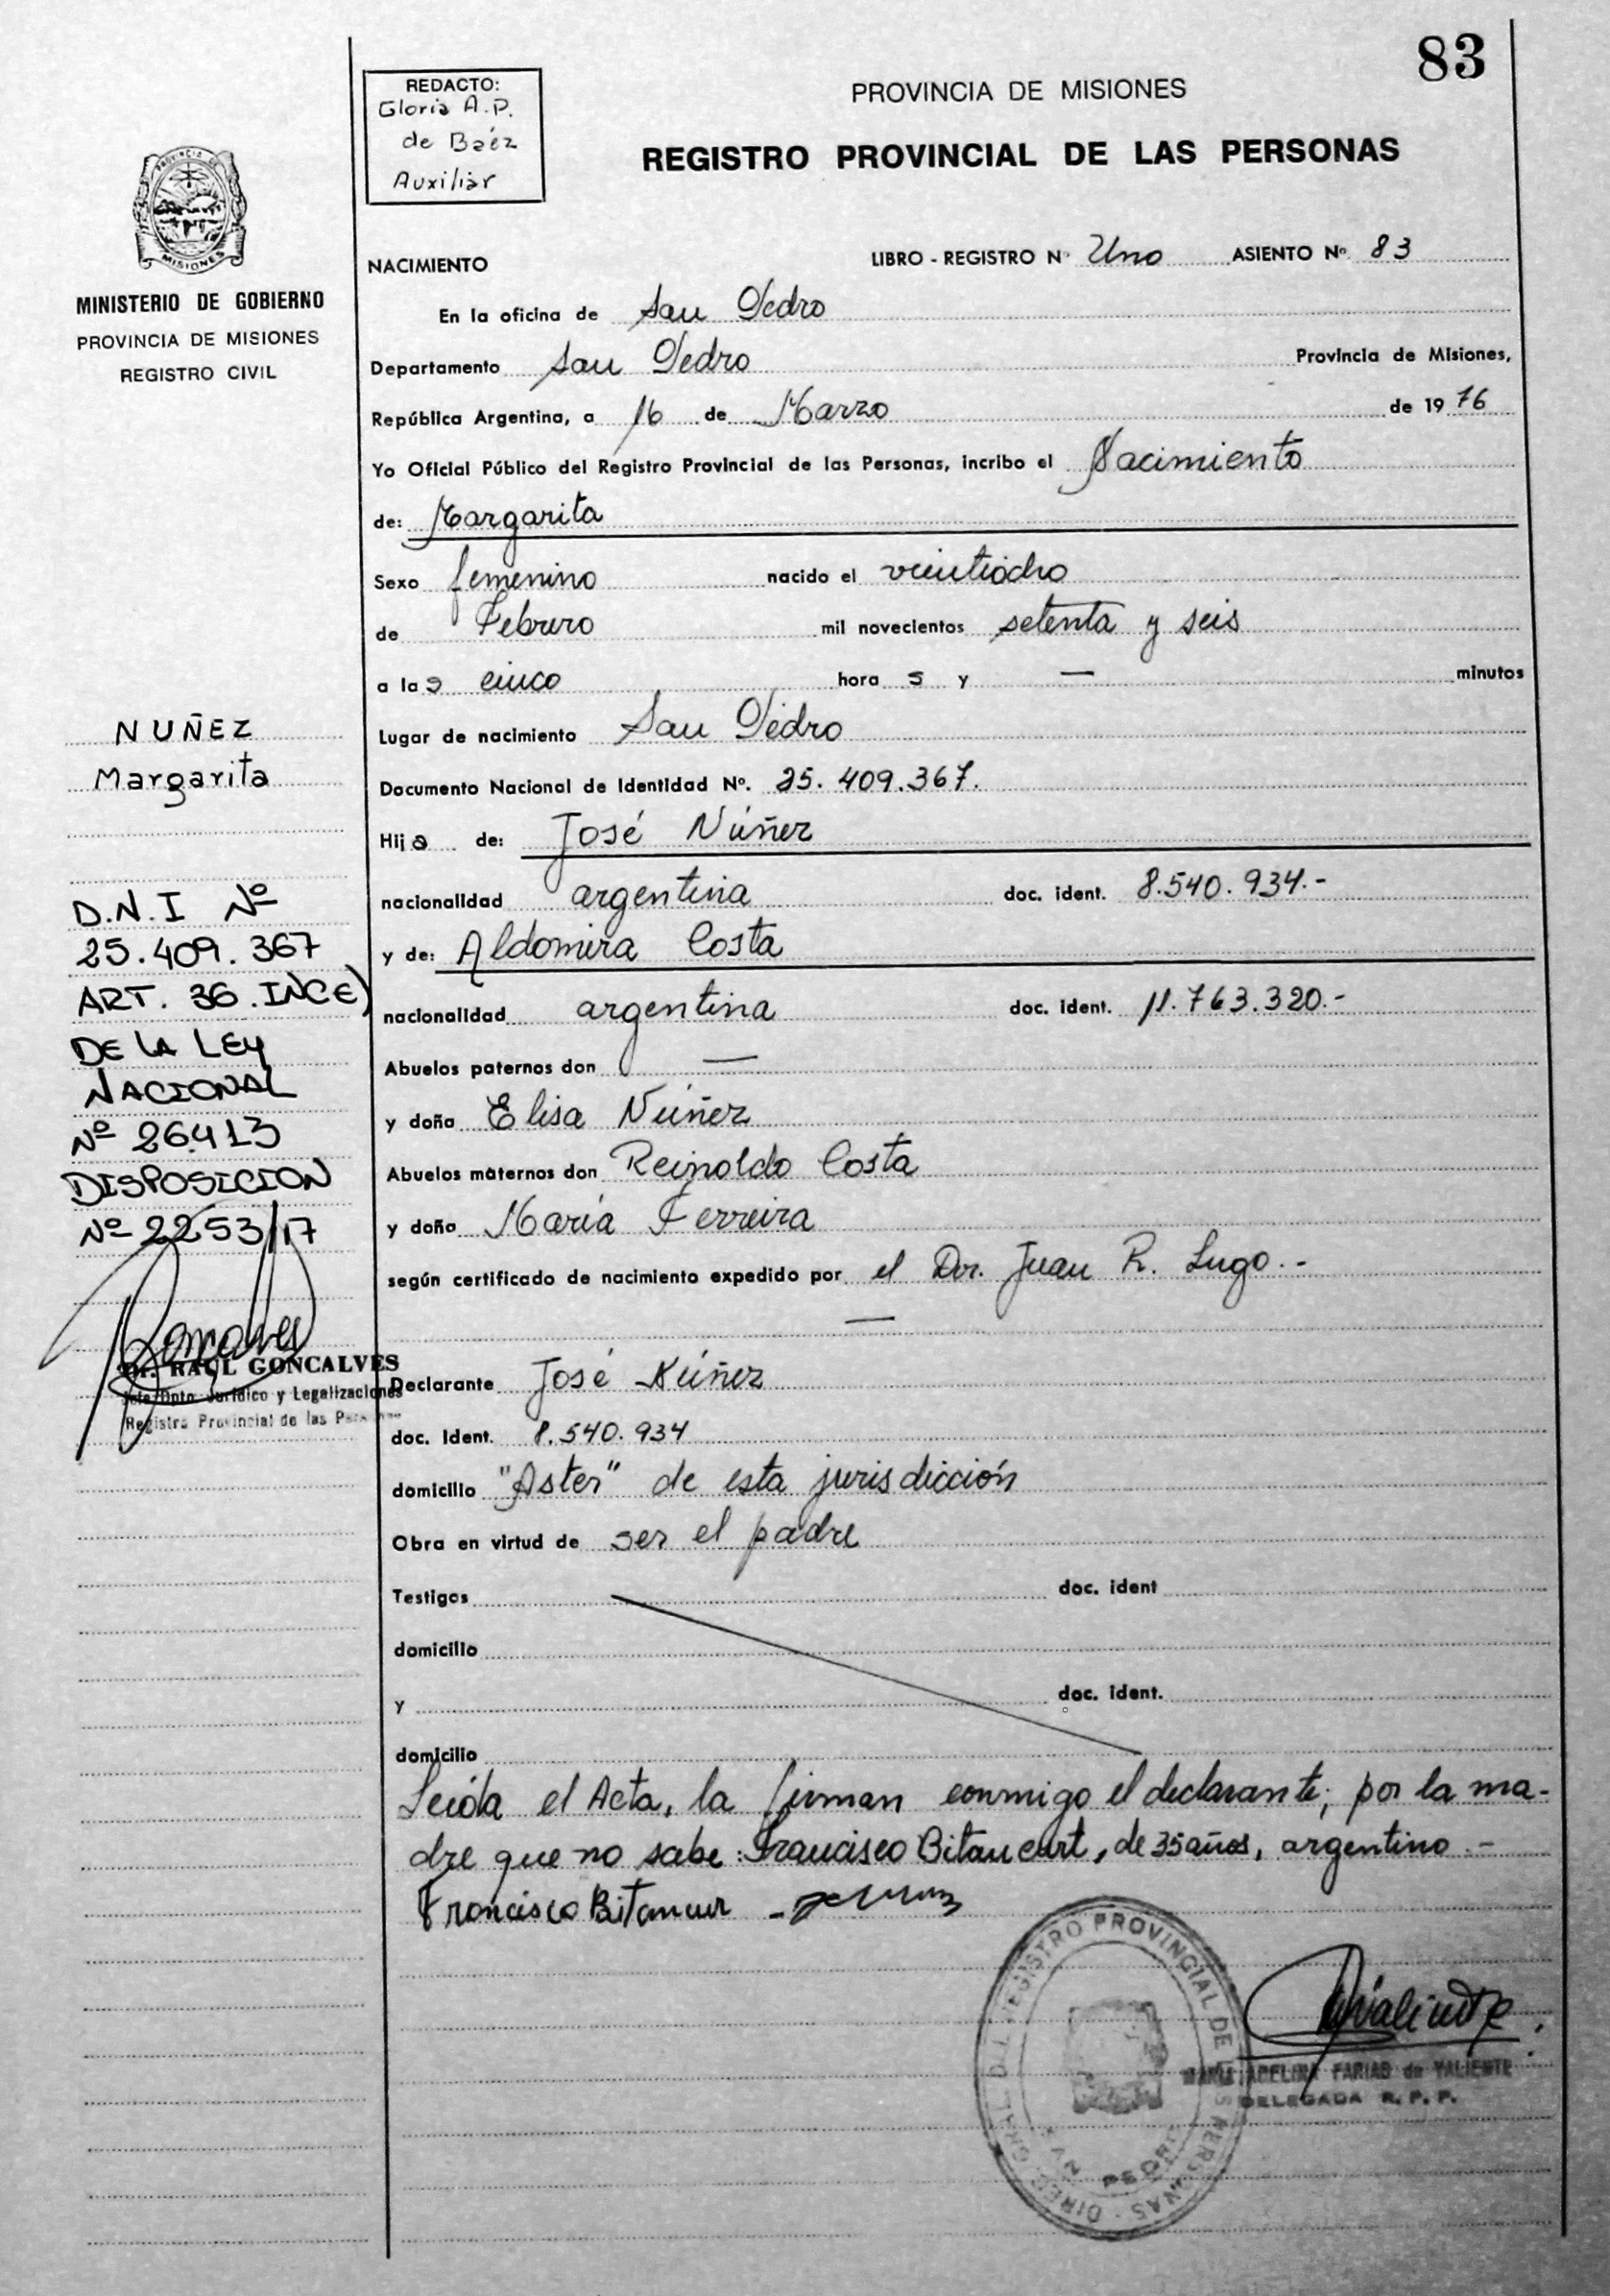 83
REDACTO:
Gloria A.P.
de Baéz
Auxiliar
PROVINCIA DE MISIONES
REGISTRO PROVINCIAL DE LAS PERSONAS
PROVINCIA DE
MISIONES
MINISTERIO DE GOBIERNO
PROVINCIA DE MISIONES
REGISTRO CIVIL
NACIMIENTO LIBRO - REGISTRO Nº Uno ASIENTO Nº 83
En la oficina de San Pedro
Departamento San Pedro Provincia de Misiones,
República Argentina, a 16 de Marzo de 1976
Yo Oficial Público del Registro Provincial de las Personas, incribo el Nacimiento
de: Margarita
Sexo femenino nacido el veintiocho
de Febrero mil novecientos setenta y seis
a las cinco hora s y — minutos
Lugar de nacimiento San Pedro
Documento Nacional de Identidad Nº. 25.409.367.
Hija de: José Núñez
nacionalidad argentina doc. ident. 8.540.934.-
y de: Aldomira Costa
nacionalidad argentina doc. ident. 11.763.320.-
Abuelos paternos don —
y doña Elisa Núñez
Abuelos maternos don Reinoldo Costa
y doña María Ferreira
según certificado de nacimiento expedido por el Dr. Juan R. Lugo.-
—
Declarante José Núñez
doc. Ident. 8.540.934
domicilio "Aster" de esta jurisdicción
Obra en virtud de ser el padre
Testigos doc. ident
domicilio
y doc. ident.
domicilio
Leída el Acta, la firman conmigo el declarante; por la ma-
dre que no sabe: Francisco Bitancurt, de 35 años, argentino.-
Francisco Bitancur
NUÑEZ
Margarita
D.N.I Nº
25.409.367
ART. 36.INC e)
DE LA LEY
NACIONAL
Nº 26413
DISPOSICION
Nº 2253/17
Goncalves
Dr. RAUL GONCALVES
Jefe Dpto. Jurídico y Legalizaciones
Registro Provincial de las
REGISTRO PROVINCIAL DE LAS PERSONAS
SAN PEDRO
Valiente
MARIA ADELINA FARIAS de VALIENTE
DELEGADA R.P.P.